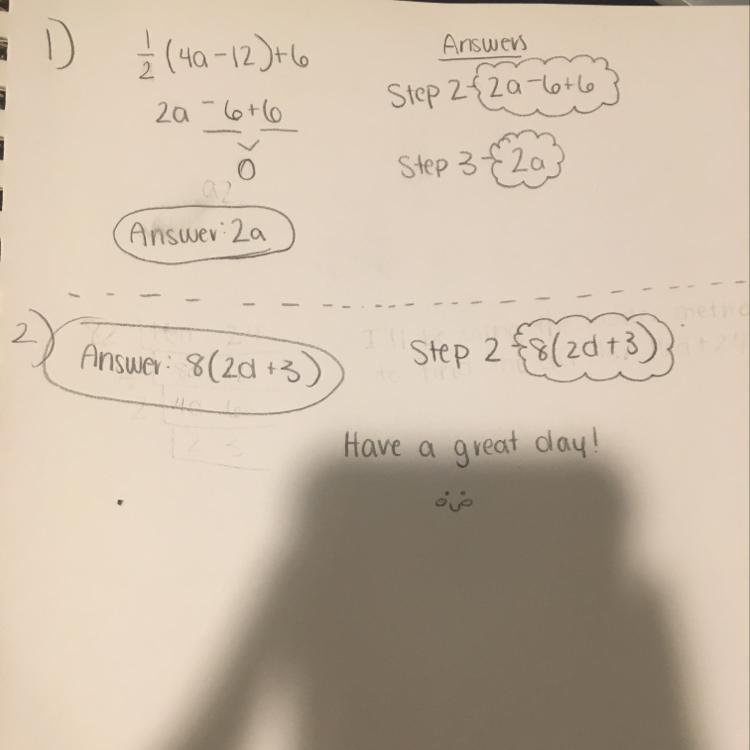 1)
1/2 (4a-12)+6
2a -6+6
0
Answer: 2a
Answers
Step 2 - 2a-6+6
Step 3 - 2a
2)
Answer: 8(2d+3)
Step 2 8(2d+3)
Have a great day!